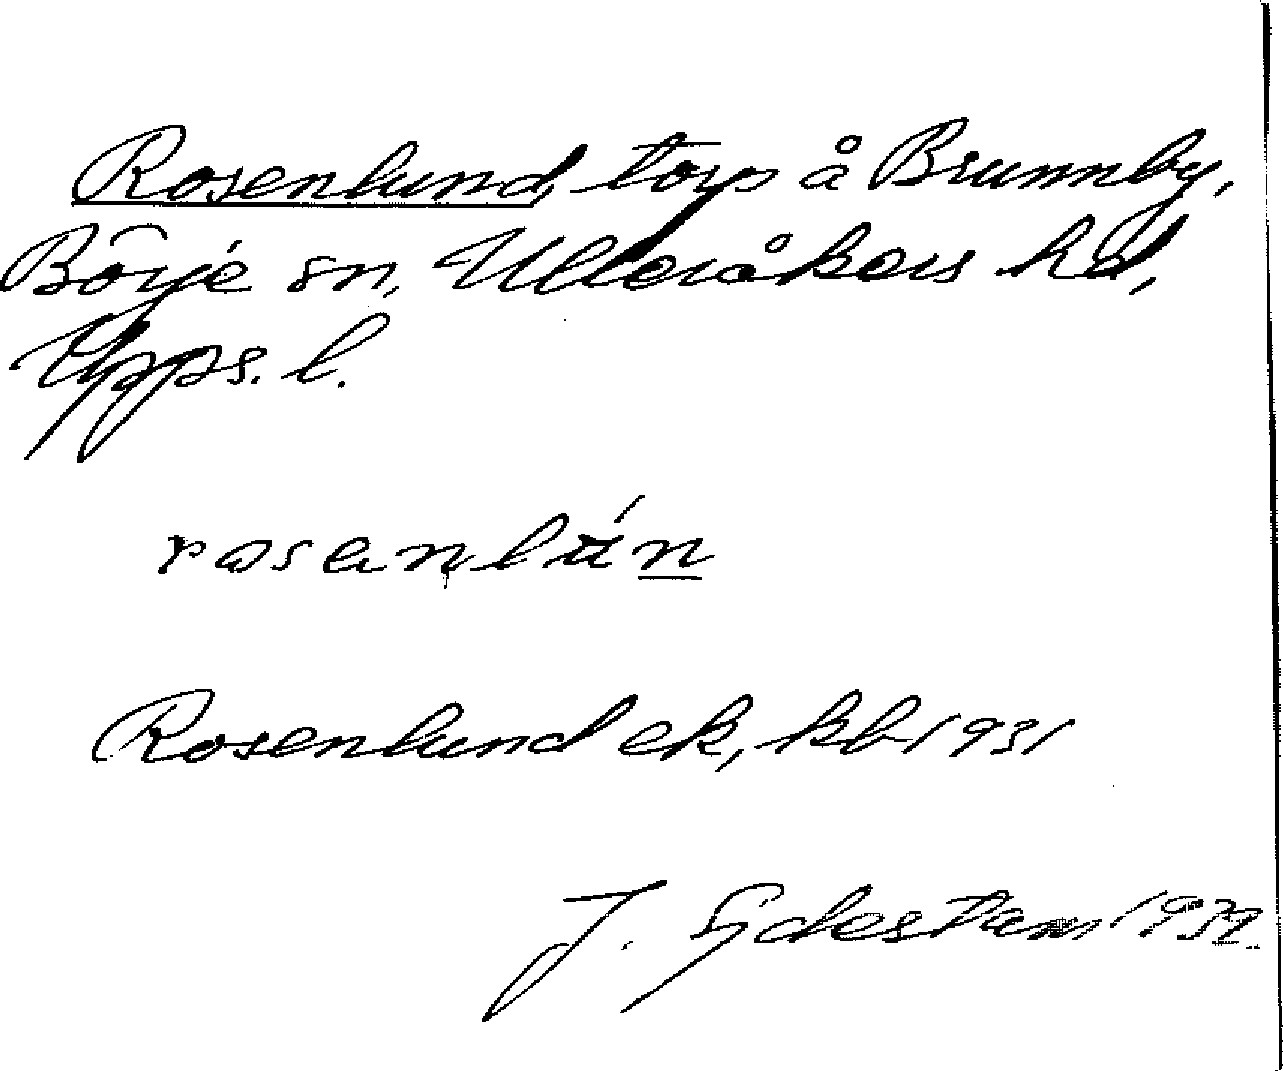 Rosenlund torp å Brunnby,
Börje sn, Ulleråkers hd,
Upps. l.
rosenlún
Rosenlund ek, kb 1931
J. Sydestam 193